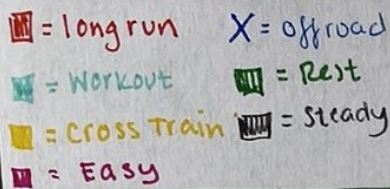 = long run
X = offroad
= Workout
= Rest
= Cross Train
= Steady
= Easy